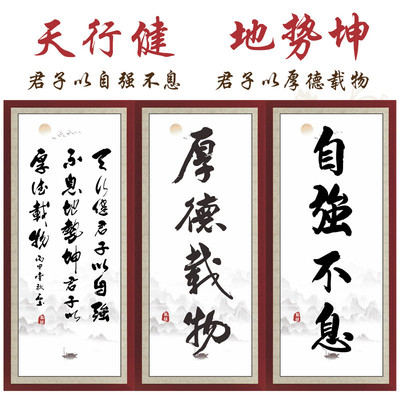 天行健
地势坤
君子以自强不息
君子以厚德载物
自強不息
厚德載物
天行健君子以自強
不息地勢坤君子以
厚德載物